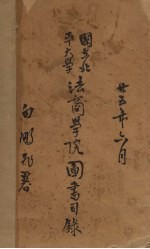 廿五年六月
國立北
平大學
法商學院圖書目錄
白鵬飛署